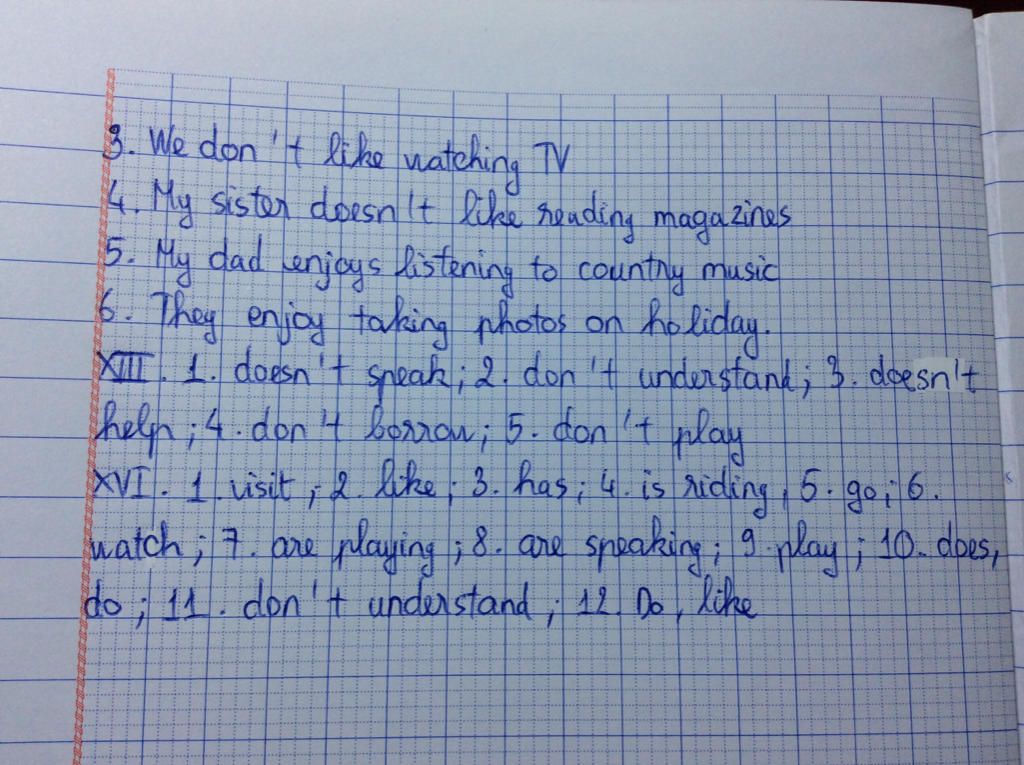 3. We don't like watching TV
4. My sister doesn't like reading magazines
5. My dad enjoys listening to country music
6. They enjoy taking photos on holiday.
XIII. 1. doesn't speak; 2. don't understand; 3. doesn't
help; 4. don't borrow; 5. don't play
XVI. 1. visit; 2. like; 3. has; 4. is riding, 5. go; 6.
watch; 7. are playing; 8. are speaking; 9. play; 10. does,
do; 11. don't understand; 12. Do, like